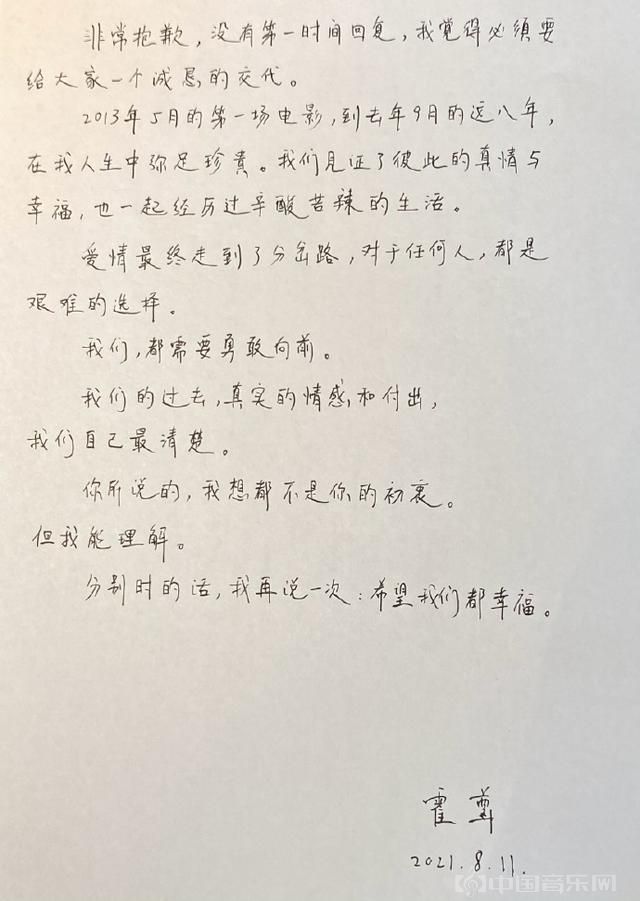 非常抱歉，没有第一时间回复，我觉得必须要
给大家一个诚恳的交代。
2013年5月的第一场电影，到去年9月的这八年，
在我人生中弥足珍贵。我们见证了彼此的真情与
幸福，也一起经历过辛酸苦辣的生活。
爱情最终走到了分岔路，对于任何人，都是
艰难的选择。
我们，都需要勇敢向前。
我们的过去，真实的情感和付出，
我们自己最清楚。
你所说的，我想都不是你的初衷。
但我能理解。
分别时的话，我再说一次：希望我们都幸福。
霍尊
2021.8.11.
中国音乐网